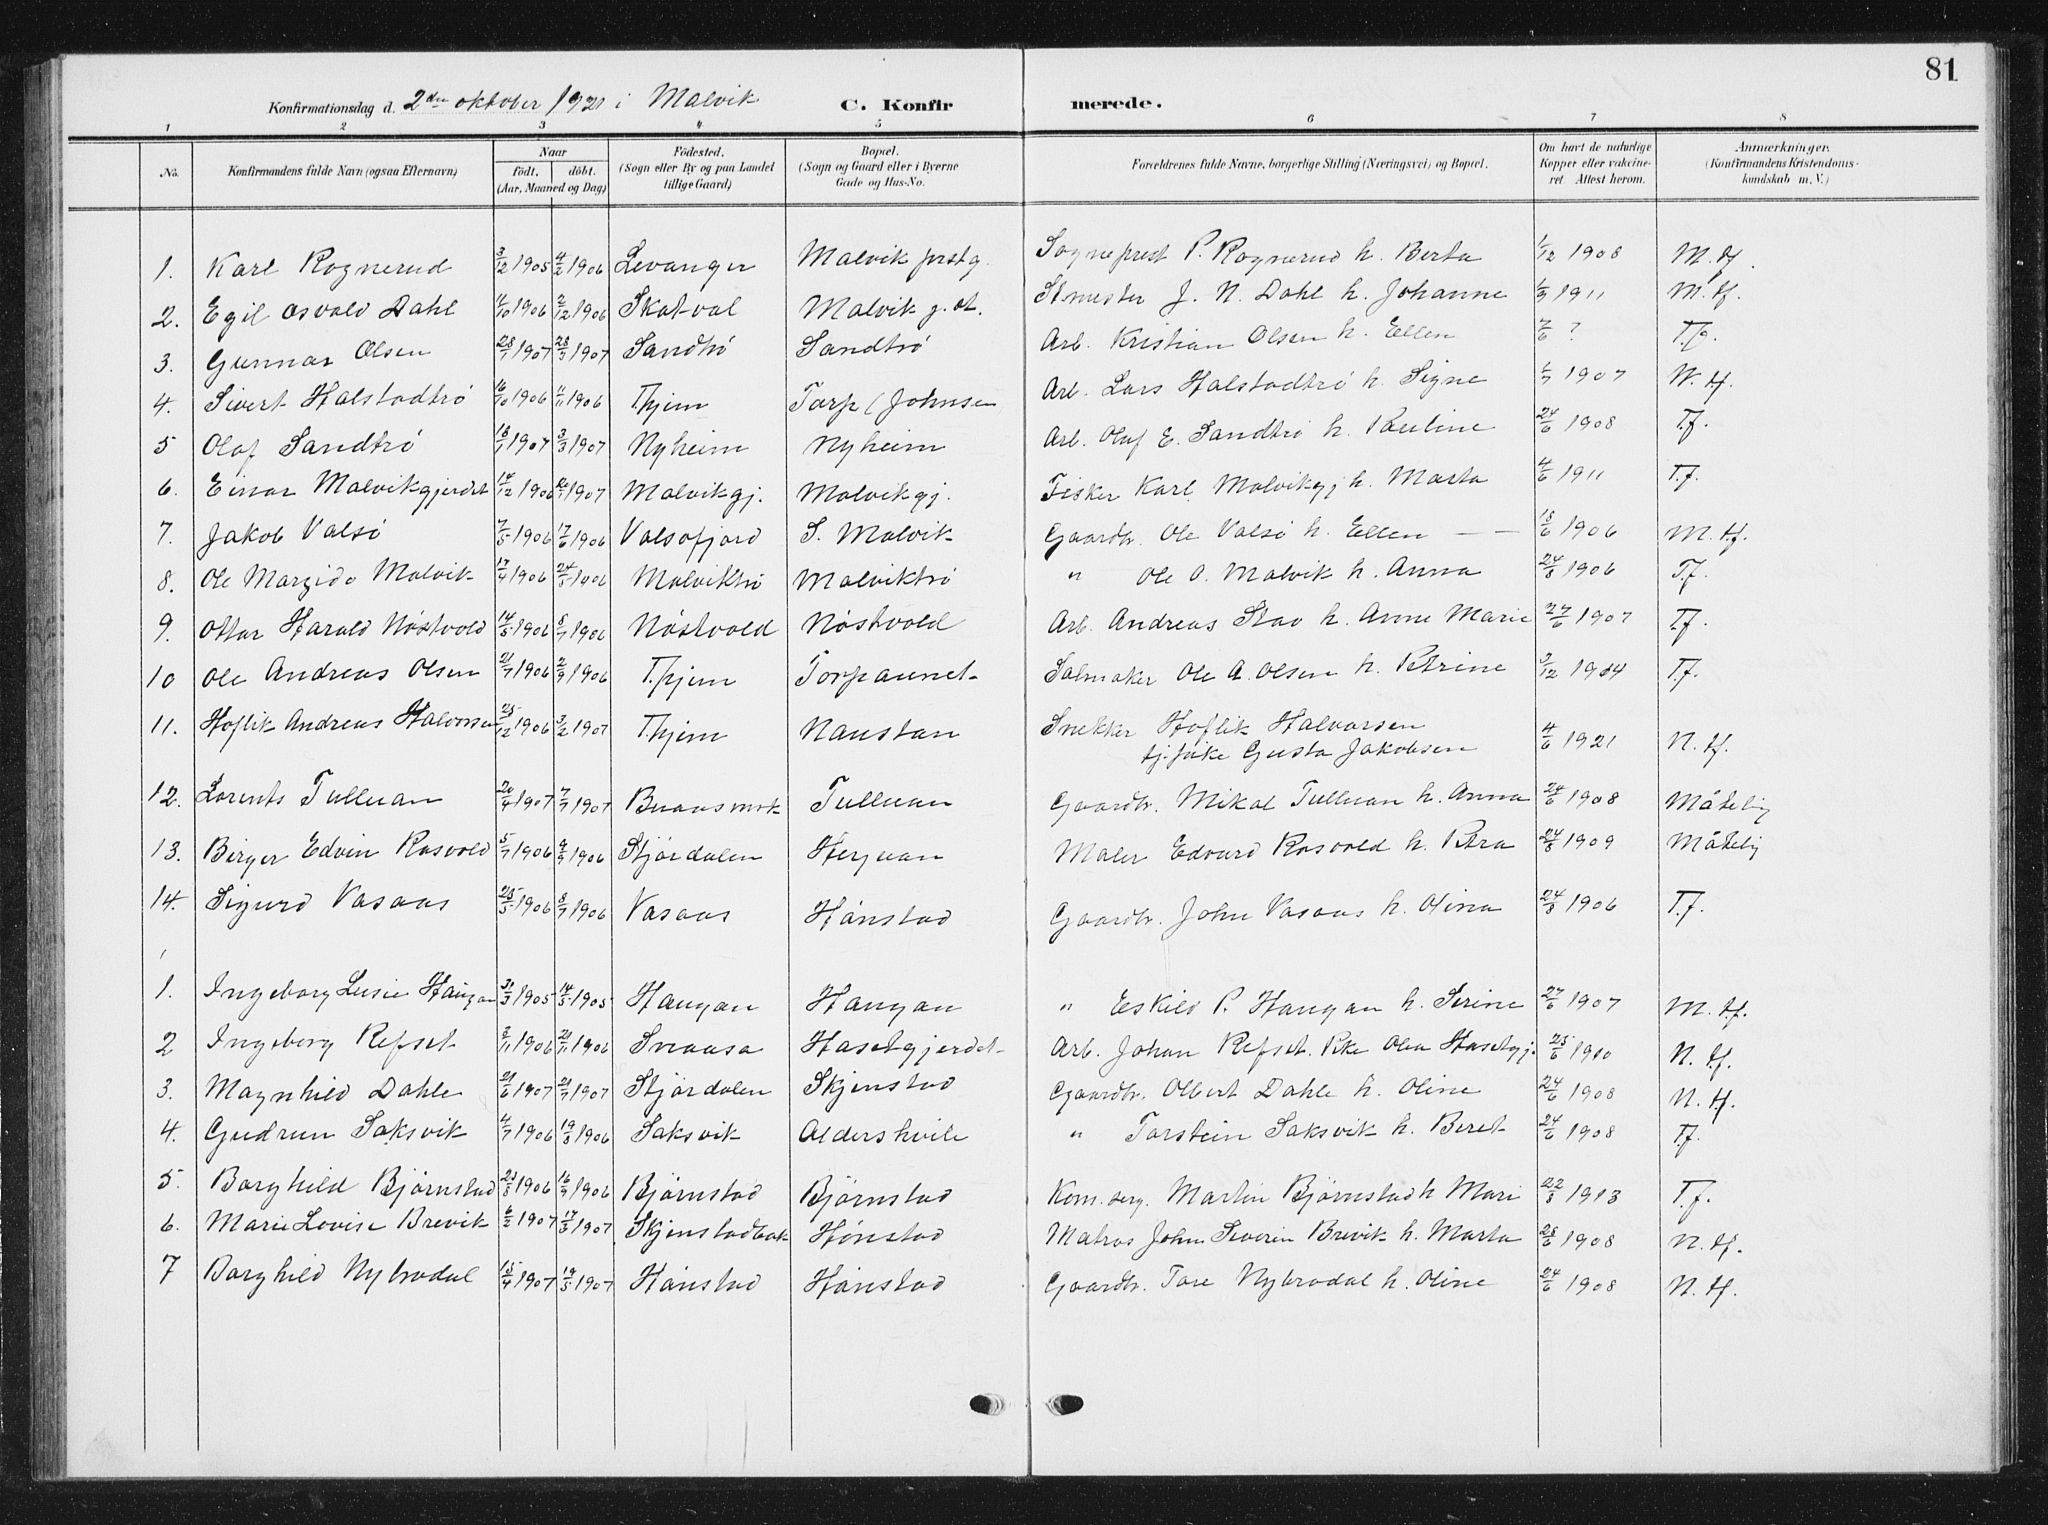 81
Konfirmationsdag d. 2den oktober 1921 i Malvik C. Konfirmerede.
1 2 3 4 5 6 7 8
No. Konfirmandens fulde Navn (ogsaa Efternavn) Naar født. døbt. (Aar, Maaned og Dag) Fødested. (Sogn eller By og paa Landet tillige Gaard) Bopæl. (Sogn og Gaard eller i Byerne Gade og Hus-No. Forældrenes fulde Navne, borgerlige Stilling (Næringsvei) og Bopæl. Om havt de naturlige Kopper eller vakcineret. Attest herom. Anmærkninger. (Konfirmandens Kristendomskundskab m. V.)
1. Karl Rognerud 3/12 1905 4/2 1906 Levanger Malvik prstg. Sogneprest P. Rognerud h. Berta 1/12 1908 M. tf.
2. Egil Osvald Dahl 4/10 1906 2/12 1906 Skatval Malvik j. st. St.mester J. N. Dahl h. Johanne 1/9 1911 M. tf.
3. Gunnar Olsen 28/1 1907 28/3 1907 Sandtrø Sandtrø Arb. Kristian Olsen h. Ellen 7/6 ? T.f.
4. Sivert Halstadtrø 16/10 1906 11/11 1906 Thjem Torp (Johnsen Arb. Lars Halstadtrø h. Signe 6/7 1907 N. tf.
5 Olaf Sandtrø 18/1 1907 3/3 1907 Nyheim Nyheim Arb. Oluf E. Sandtrø h. Pauline 24/6 1908 T.f.
6. Einar Malvikgjerdet 14/12 1906 1907 Malvikgj. Malvikgj. Fisker Karl Malvikgj h. Marta 4/6 1911 T.f.
7. Jakob Valsø 7/5 1906 17/6 1906 Valsøfjord S. Malvik Gaardbr. Ole Valsø h. Ellen — — 18/6 1906 M. tf.
8. Ole Margido Malvik 17/4 1906 24/5 1906 Malviktrø Malviktrø " Ole O. Malvik h. Anna 24/8 1906 T.f.
9. Ottar Harald Nøstvold 14/5 1906 8/7 1906 Nøstvold Nøstvold Arb. Andreas Stav h. Anne Marie 27/6 1907 T.f.
10 Ole Andreas Olsen 21/7 1906 2/9 1906 Thjem Torpaunet Salmaker Ole A. Olsen h. Petrine 3/12 1914 T.f.
11. Hoflik Andreas Halvorsen 25/12 1906 3/2 1907 Thjem Naustan Snekker Hoflik Halvorsen
tj. pike Gusta Jakobsen 4/6 1921 N. tf.
12. Lorents Tulluan 20/4 1907 7/7 1907 Buaasmrk Tulluan Gaardbr. Mikal Tulluan h. Anna 24/6 1908 Måtelig
13. Birger Edvin Rosvold 5/7 1906 9/9 1906 Stjørdalen Herjuan Maler Edvard Rosvold h. Petra 24/8 1909 Måtelig
14. Sigurd Vasaas 28/5 1906 8/7 1906 Vasaas Hønstad Gaardbr. John Vasaas h. Olina 24/8 1906 T.f.
1. Ingeborg Lusie Haugan 31/3 1905 14/5 1905 Haugan Haugan " Eskild P. Haugan h. Serine 27/6 1907 M. tf.
2 Ingeborg Refset 3/11 1906 1906 Snaasa Hasetgjerdet Arb. Johan Refset. Pke Olea Hasetgj. 25/6 1910 N. tf.
3. Magnhild Dahle 21/6 1907 21/7 1907 Stjørdalen Skjenstad Gaardbr. Olbert Dahle h. Oline 24/6 1908 N. tf.
4. Gudrun Saksvik 4/7 1906 19/8 1906 Saksvik Aldershvile " Torstein Saksvik h. Beret 24/6 1908 T.f.
5. Borghild Bjørnstad 23/8 1906 16/9 1906 Bjørnstad Bjørnstad Kom. serg. Martin Bjørnstad h Mari 22/8 1913 T.f.
6. Marie Lovise Brevik 6/2 1907 17/3 1907 Skjenstadbak Hønstad Matros John Severin Brevik h. Marta 28/6 1908 N. tf.
7 Borghild Nybrodal 15/4 1907 19/5 1907 Hønstad Hønstad Gaardbr. Tore Nybrodal h. Oline 24/6 1908 N. tf.